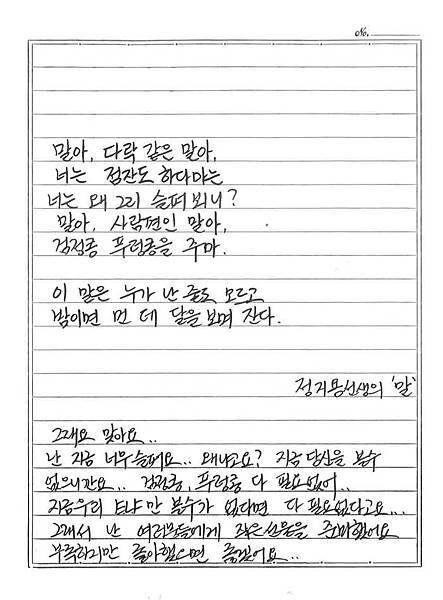 No.
말아, 다락 같은 말아,
너는 점잔도 하다마는
너는 왜 그리 슬퍼 뵈니?
말아, 사람편인 말아,
검정콩 푸렁콩을 주마.
이 말은 누가 난 줄도 모르고
밤이면 먼 데 달을 보며 잔다.
정지용선생의 '말'
그래요 맞아요..
난 지금 너무 슬퍼요.. 왜냐고요? 지금 당신을 볼수
없으니깐요.. 검정콩, 푸렁콩 다 필요없어..
지금우리 E나만 볼수가 없다면 다 필요없다고요...
그래서 난 여러분들에게 작은선물을 준비했어요
부족하지만 좋아했으면 좋겠어요..